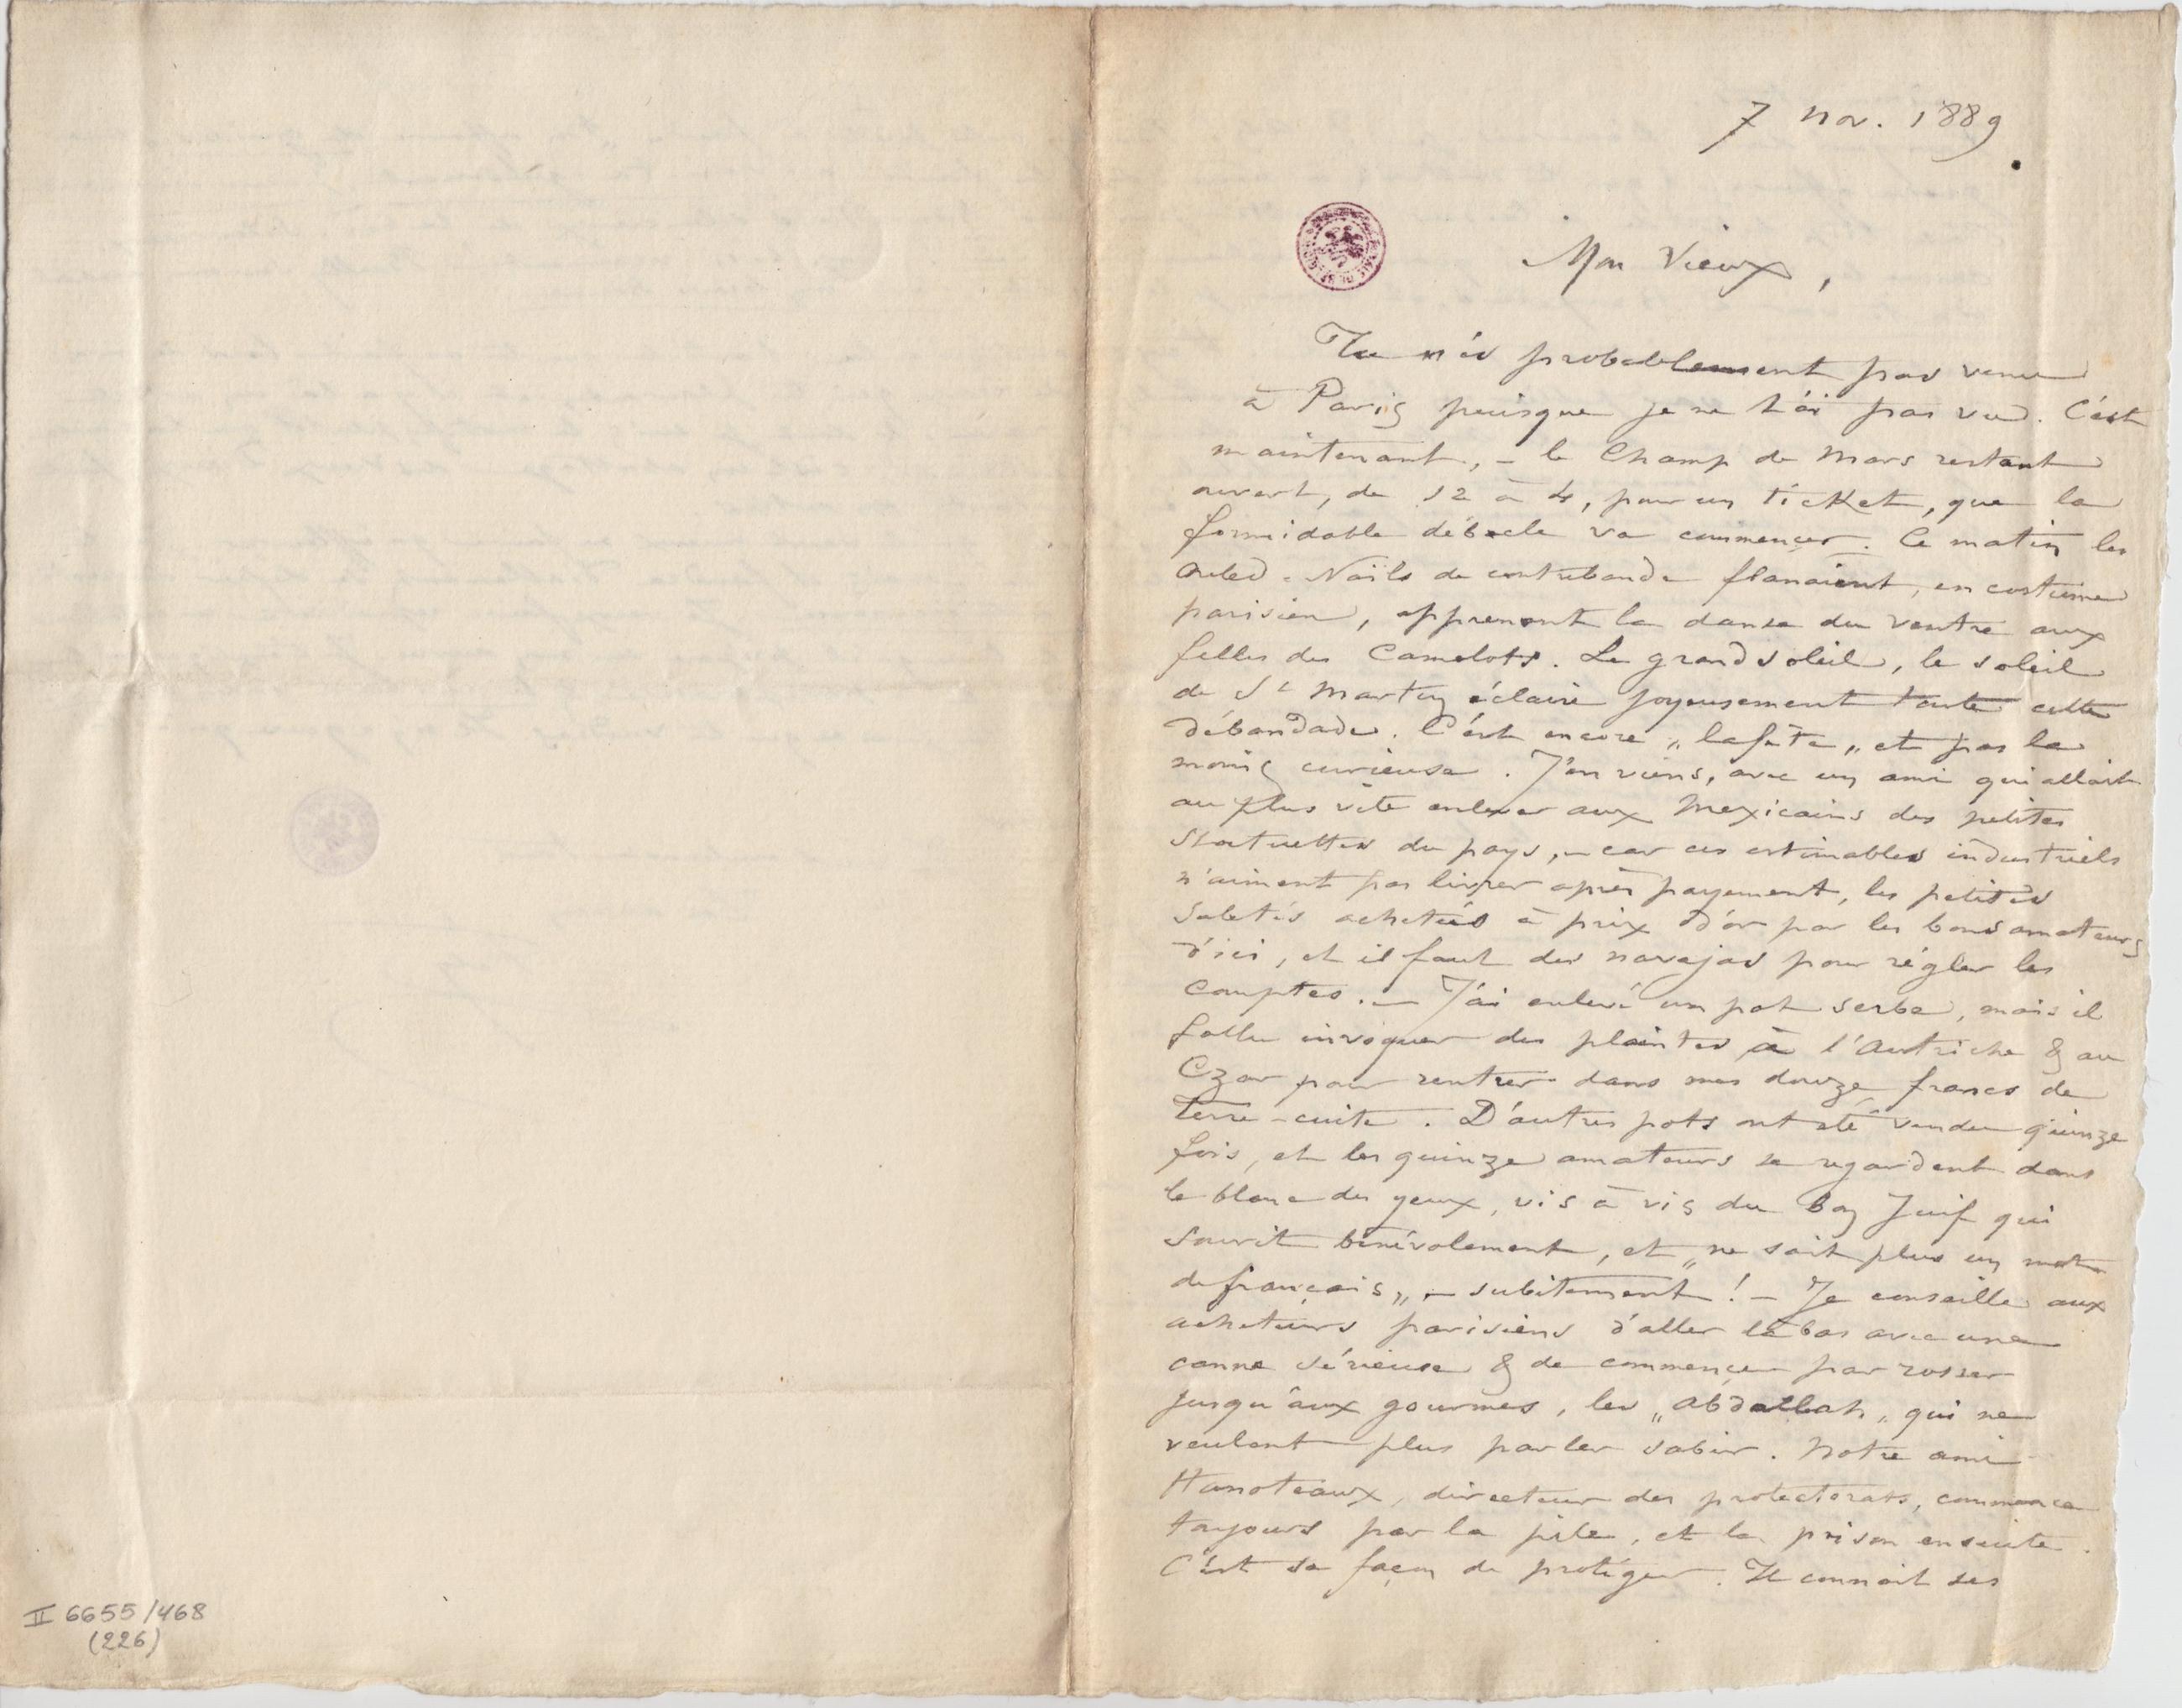 7 nov. 1889
Mon Vieux,
Tu n'és probablement pas venu
à Paris puisque je ne t'ai pas vu. C'est
maintenant, – le Champ de Mars restant
ouvert, de 12 à 4, pour un ticket, que la
formidable débacle va commencer. Ce matin les
Ouled-Naïls de contrebande flanaient, en costume
parisien, apprenant la danse du ventre aux
filles des Camelots. Le grand soleil, le soleil
de St Martin éclaire joyeusement toute cette
débandade. C'est encore „la fête„ et pas la
moins curieuse. J'en viens, avec un ami qui allait
au plus vite enlever aux Mexicains des petites
statuettes du pays, – car ces estimables industriels
n'aiment pas livrer après payement, les petites
saletés achetées à prix d'or par les bons amateurs
d'ici, et il faut des navajas pour régler les
comptes. – J'ai enlevé un pot serbe, mais il
fallu invoquer des plaintes à l'Autriche & au
Czar pour rentrer dans mes douze francs de
terre-cuite. D'autres pots ont été vendu quinze
fois, et les quinze amateurs se regardent dans
le blanc des yeux, vis à vis du Bon Juif qui
sourit bénévolement, et „ne sait plus un mot
de français„ – subitement! – Je conseille aux
acheteurs parisiens d'aller là bas avec une
canne sérieuse & de commencer par rosser
jusqu'aux gourmes, les „Abdallah„ qui ne
veulent plus parler sabir. Notre ami
Hanoteaux, directeur des protectorats, commence
toujours par la pile, et la prison ensuite.
C'est sa façon de protéger. Il connait ses
II 6655/468
(226)